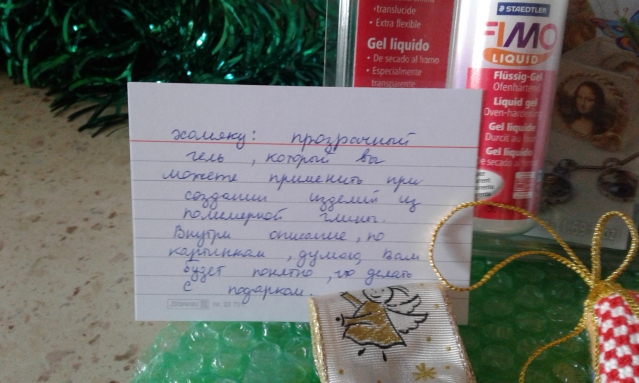 translucide
• Extra flexible
Gel líquido
• De secado al horno
• Especialmente
transparente
STAEDTLER
FIMO
LIQUID
Flüssig-Gel
Ofenhärtend
Liquid gel
Oven-hardening
Gel liquide
Durcit au four
Gel líquido
De secado al
хомяку: прозрачный
гель, который вы
можете применить при
создании изделий из
полимерной глины.
Внутри описание, по
картинкам, думаю, вам
будет понятно, что делать
с подарком.